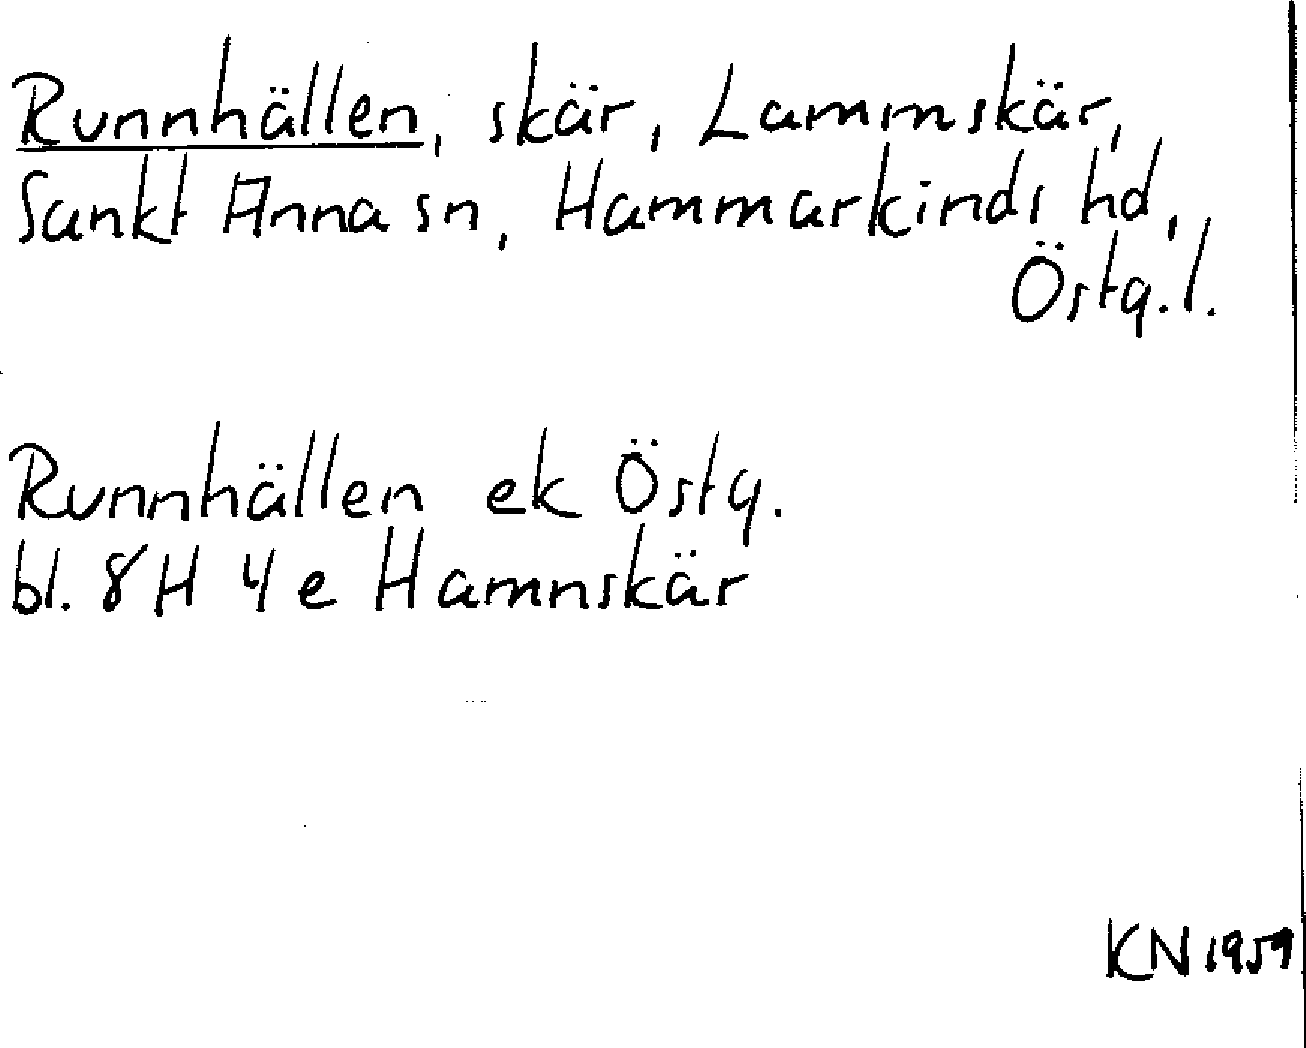 Runnhällen, skär, Lammskär,
Sankt Anna sn, Hammarkinds hd,
Östg.l.
Runnhällen ek Östg.
bl. 8H 4e Hamnskär
KN 1959